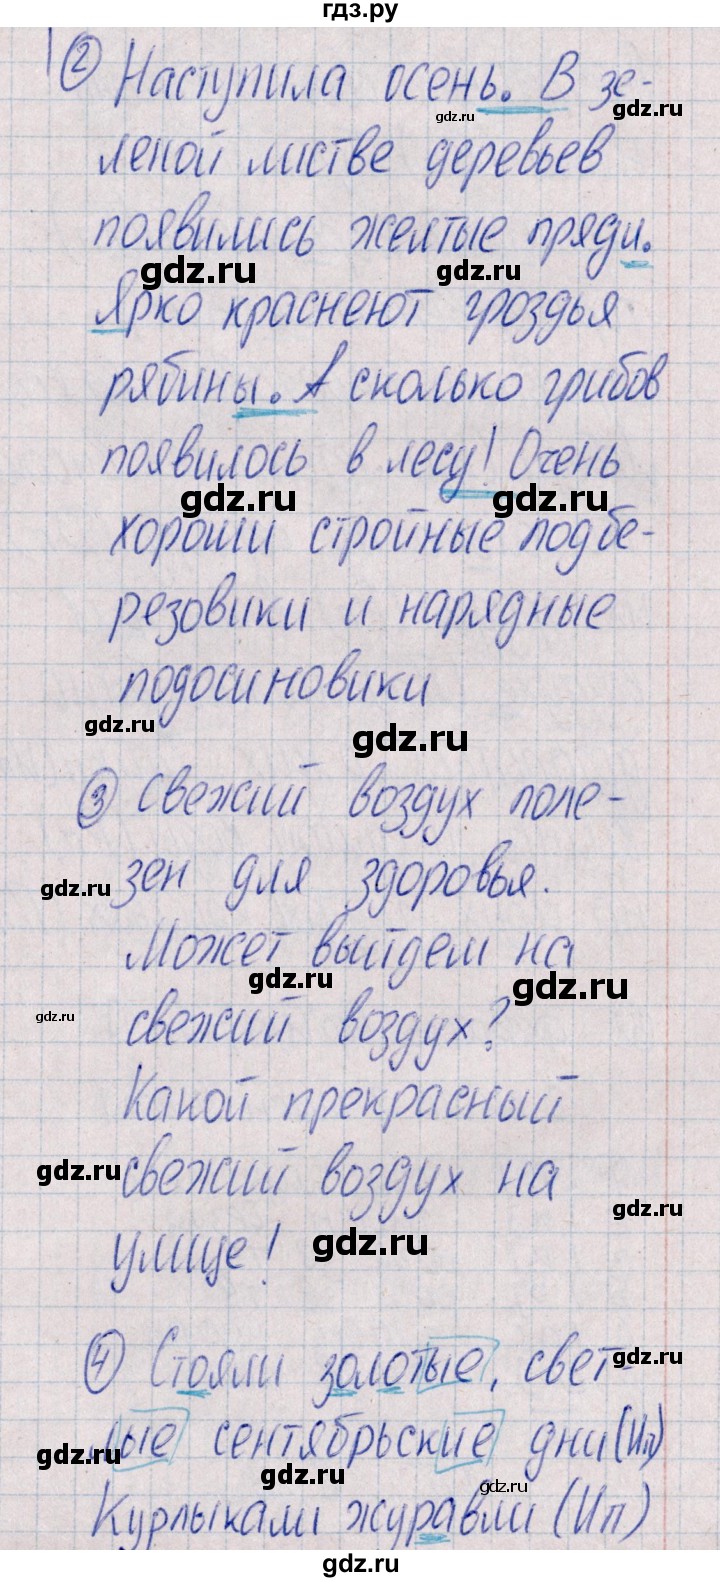 гдз.ру
② Наступила осень. В зе-
gdz.ru
gdz.ru
леной листве деревьев
появились желтые пряди.
gdz.ru
gdz.ru
Ярко краснеют гроздья
рябины. А сколько грибов
появилось в лесу! Очень
gdz.ru
gdz.ru
хороши стройные подбе-
резовики и нарядные
подосиновики
gdz.ru
gdz.ru
③ Свежий воздух поле-
зен для здоровья.
gdz.ru
Может выйдем на
gdz.ru
gdz.ru
свежий воздух?
gdz.ru
Какой прекрасный
свежий воздух на
gdz.ru
gdz.ru
улице!
gdz.ru
④ Стояли золотые, свет-
gdz.ru
лые сентябрьские дни (Ип)
gdz.ru
gdz.ru
gdz.ru
Курлыкали журавли (Ип)
gdz.ru
gdz.ru